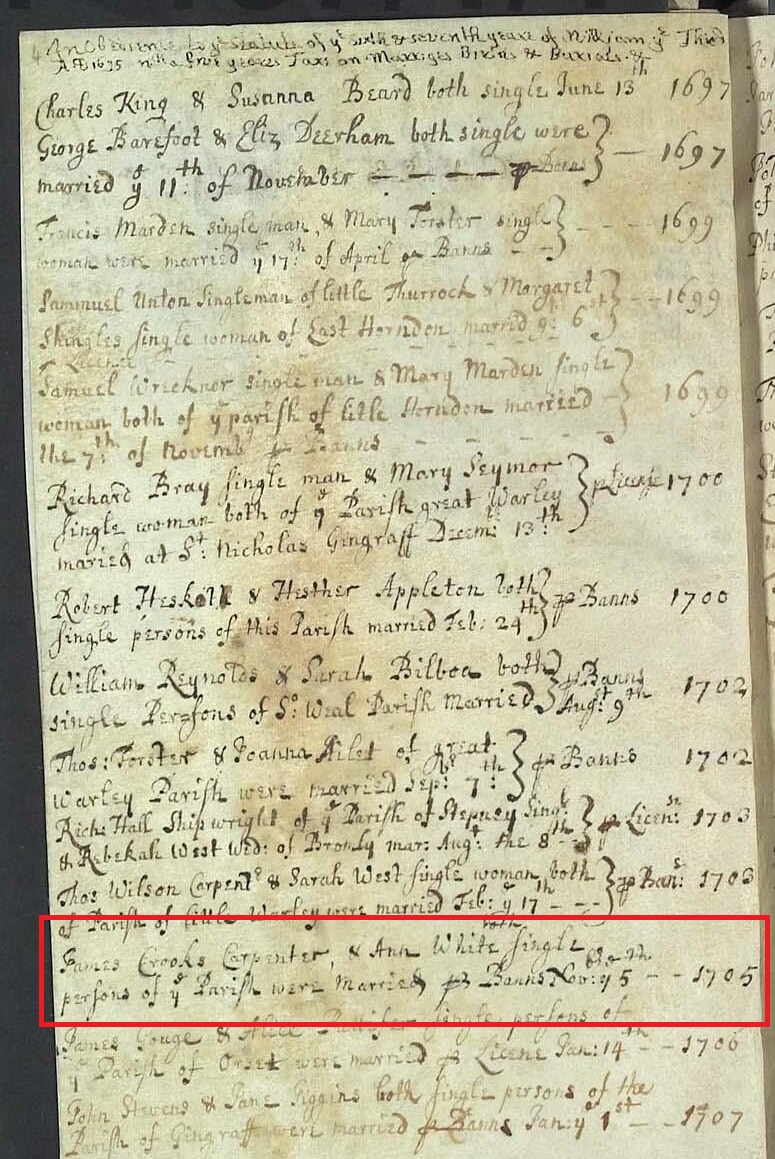 In Obedience to ye statute of ye sixth & seventh yeare of William ye Third
AD 1695 a five yeares Taxe on Marriges Births & Burials &
Charles King & Susanna Beard both single June 13th 1697
George Barefoot & Eliz Deerham both single were
married ye 11:th of November - - - - p Banns } — 1697
Francis Marden single man, & Mary Forster single
woman were married ye 17:th of April p Banns - - } - - - 1699
Sammuel Unton Singleman of little Thurrock & Margaret
Shingles single woman of East Horndon married 6st } - - 1699
p Licence
Samuel Wreckner single man & Mary Marden single
woman both of ye parish of litle Horndon married
the 7:th of Novemb p Banns - - - - } 1699
Richard Bray single man & Mary Seymor
single woman both of ye Parish great Warley
maried at St: Nicholas Gingraff Decem: 13:th } p License 1700
Robert Heskett & Hesther Appleton both
single persons of this Parish married Feb: 24th } p Banns 1700
William Reynolds & Sarah Bilboa both
single Perssons of So: Weal Parish Married } p Banns Augst 9th 1702
Thos: Forster & Joanna Ailet of great
Warley Parish were married Sepbr: 7:th } p Banns 1702
Rich: Hall Shipwright of ye Parish of Stepney Singl:
& Rebekah West Wid: of Bromly mar: Augt: the 8th - - } p Licensn: 1703
Thos Wilson Carpentr & Sarah West single woman both
of Parish of little Warley were married Feb: ye 17th - - - } p Bans: 1703
James Crooks Carpenter, & Ann White both single
persons of ye Parish were Married p Banns Nov: ye 5 - - 1705
James Gouge & Alice single persons of
ye Parish of Orset were married p Licene Jan: 14th - - 1706
John Stevens & Jane Figgins both single persons of the
Parish of Gingraff were married p Banns Jan: ye 1st — - 1707